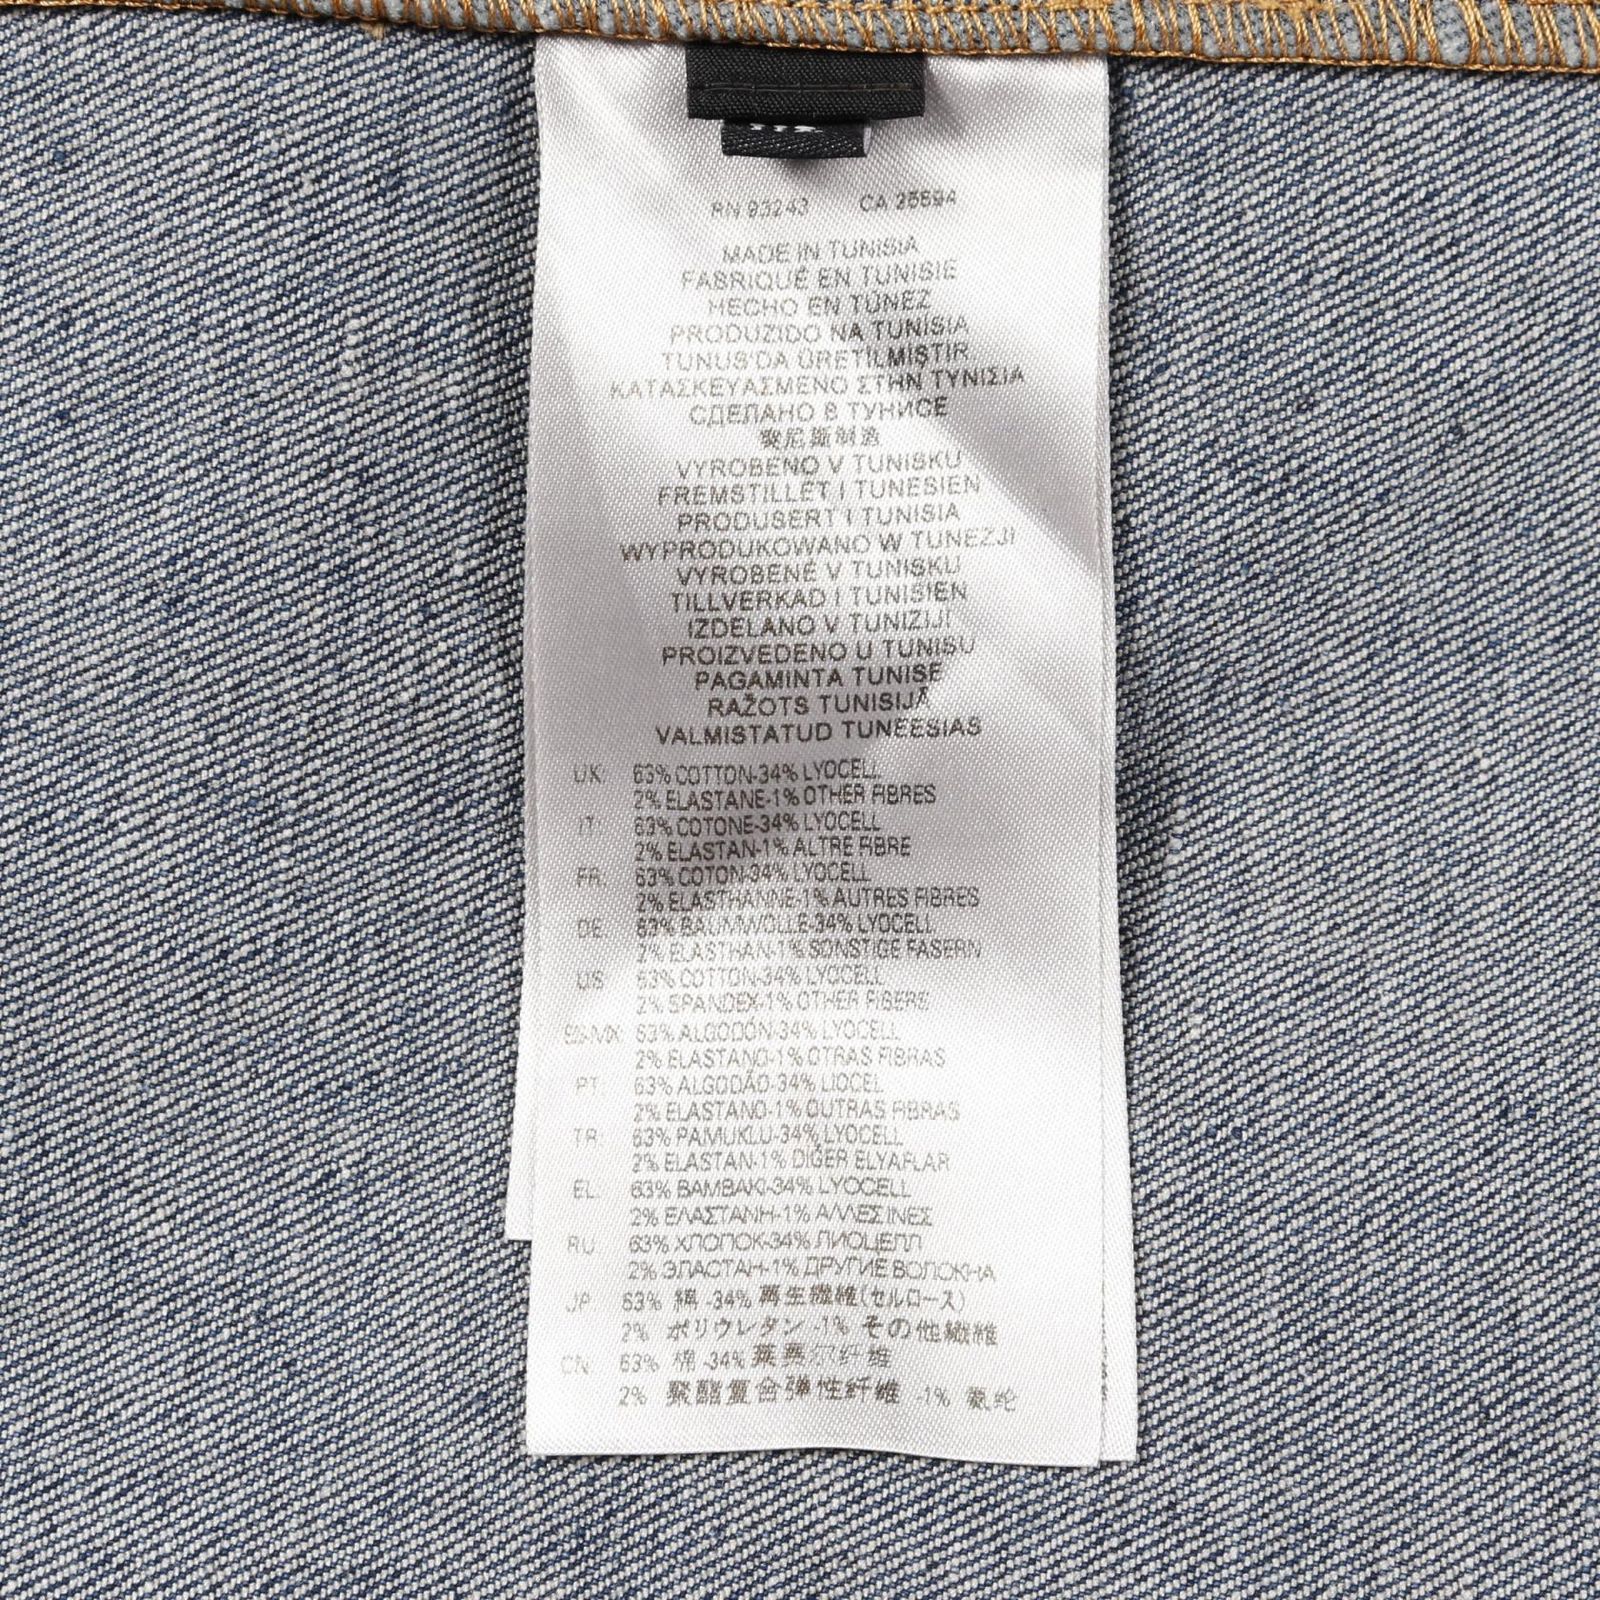 RN 93243 CA 25594
MADE IN TUNISIA
FABRIQUÉ EN TUNISIE
HECHO EN TÚNEZ
PRODUZIDO NA TUNÍSIA
TUNUS'DA ÜRETİLMİŞTİR
ΚΑΤΑΣΚΕΥΑΣΜΕΝΟ ΣΤΗΝ ΤΥΝΙΣΙΑ
СДЕЛАНО В ТУНИСЕ
突尼斯制造
VYROBENO V TUNISKU
FREMSTILLET I TUNESIEN
PRODUSERT I TUNISIA
WYPRODUKOWANO W TUNEZJI
VYROBENÉ V TUNISKU
TILLVERKAD I TUNISIEN
IZDELANO V TUNIZIJI
PROIZVEDENO U TUNISU
PAGAMINTA TUNISE
RAŽOTS TUNISIJĀ
VALMISTATUD TUNEESIAS
UK: 63% COTTON-34% LYOCELL
2% ELASTANE-1% OTHER FIBRES
IT: 63% COTONE-34% LYOCELL
2% ELASTAN-1% ALTRE FIBRE
FR: 63% COTON-34% LYOCELL
2% ELASTHANNE-1% AUTRES FIBRES
DE: 63% BAUMWOLLE-34% LYOCELL
2% ELASTHAN-1% SONSTIGE FASERN
US: 63% COTTON-34% LYOCELL
2% SPANDEX-1% OTHER FIBERS
ES-MX: 63% ALGODÓN-34% LYOCELL
2% ELASTANO-1% OTRAS FIBRAS
PT: 63% ALGODÃO-34% LIOCEL
2% ELASTANO-1% OUTRAS FIBRAS
TR: 63% PAMUKLU-34% LYOCELL
2% ELASTAN-1% DİĞER ELYAFLAR
EL: 63% ΒΑΜΒΑΚΙ-34% LYOCELL
2% ΕΛΑΣΤΑΝΗ-1% ΑΛΛΕΣ ΙΝΕΣ
RU: 63% ХЛОПОК-34% ЛИОЦЕЛЛ
2% ЭЛАСТАН-1% ДРУГИЕ ВОЛОКНА
JP: 63% 綿 -34% 再生繊維(セルロース)
2% ポリウレタン -1% その他繊維
CN: 63% 棉 -34% 莱赛尔纤维
2% 聚酯复合弹性纤维 -1% 氨纶